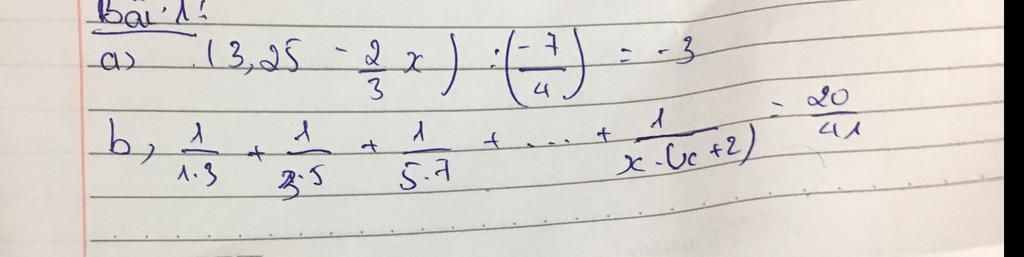 Bài 1:
a) (3,25 - 2/3 x) : (-7/4) = -3
b, 1/1.3 + 1/3.5 + 1/5.7 + ... + 1/x.(x+2) = 20/41